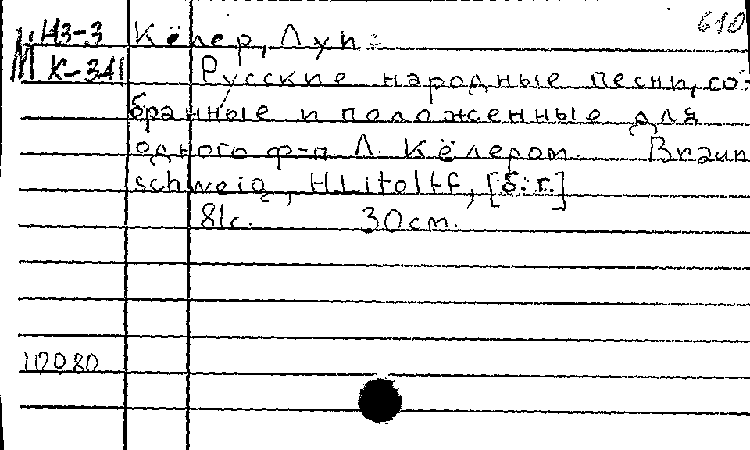 610
М Н3-3
К-341
Кёлер, Луи.
Русские народные песни, со-
бранные и положенные для
одного ф-п Л. Кёлером. Braun
schweig, H Litolff, [б.г.]
81с. 30 cm.
10080